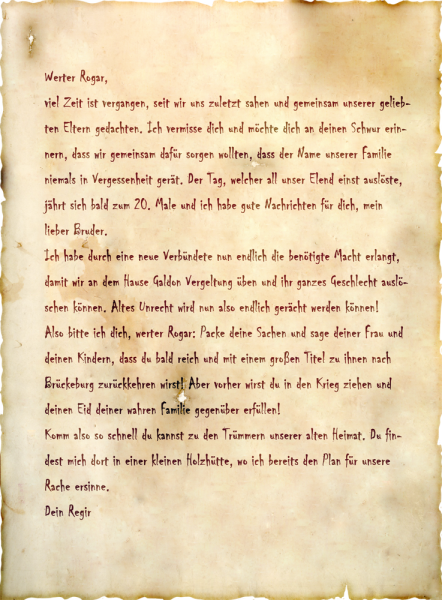 Werter Rogar,
viel Zeit ist vergangen, seit wir uns zuletzt sahen und gemeinsam unserer gelieb-
ten Eltern gedachten. Ich vermisse dich und möchte dich an deinen Schwur erin-
nern, dass wir gemeinsam dafür sorgen wollten, dass der Name unserer Familie
niemals in Vergessenheit gerät. Der Tag, welcher all unser Elend einst auslöste,
jährt sich bald zum 20. Male und ich habe gute Nachrichten für dich, mein
lieber Bruder.
Ich habe durch eine neue Verbündete nun endlich die benötigte Macht erlangt,
damit wir an dem Hause Galdon Vergeltung üben und ihr ganzes Geschlecht auslö-
schen können. Altes Unrecht wird nun also endlich gerächt werden können!
Also bitte ich dich, werter Rogar: Packe deine Sachen und sage deiner Frau und
deinen Kindern, dass du bald reich und mit einem großen Titel zu ihnen nach
Brückeburg zurückkehren wirst! Aber vorher wirst du in den Krieg ziehen und
deinen Eid deiner wahren Familie gegenüber erfüllen!
Komm also so schnell du kannst zu den Trümmern unserer alten Heimat. Du fin-
dest mich dort in einer kleinen Holzhütte, wo ich bereits den Plan für unsere
Rache ersinne.
Dein Regir